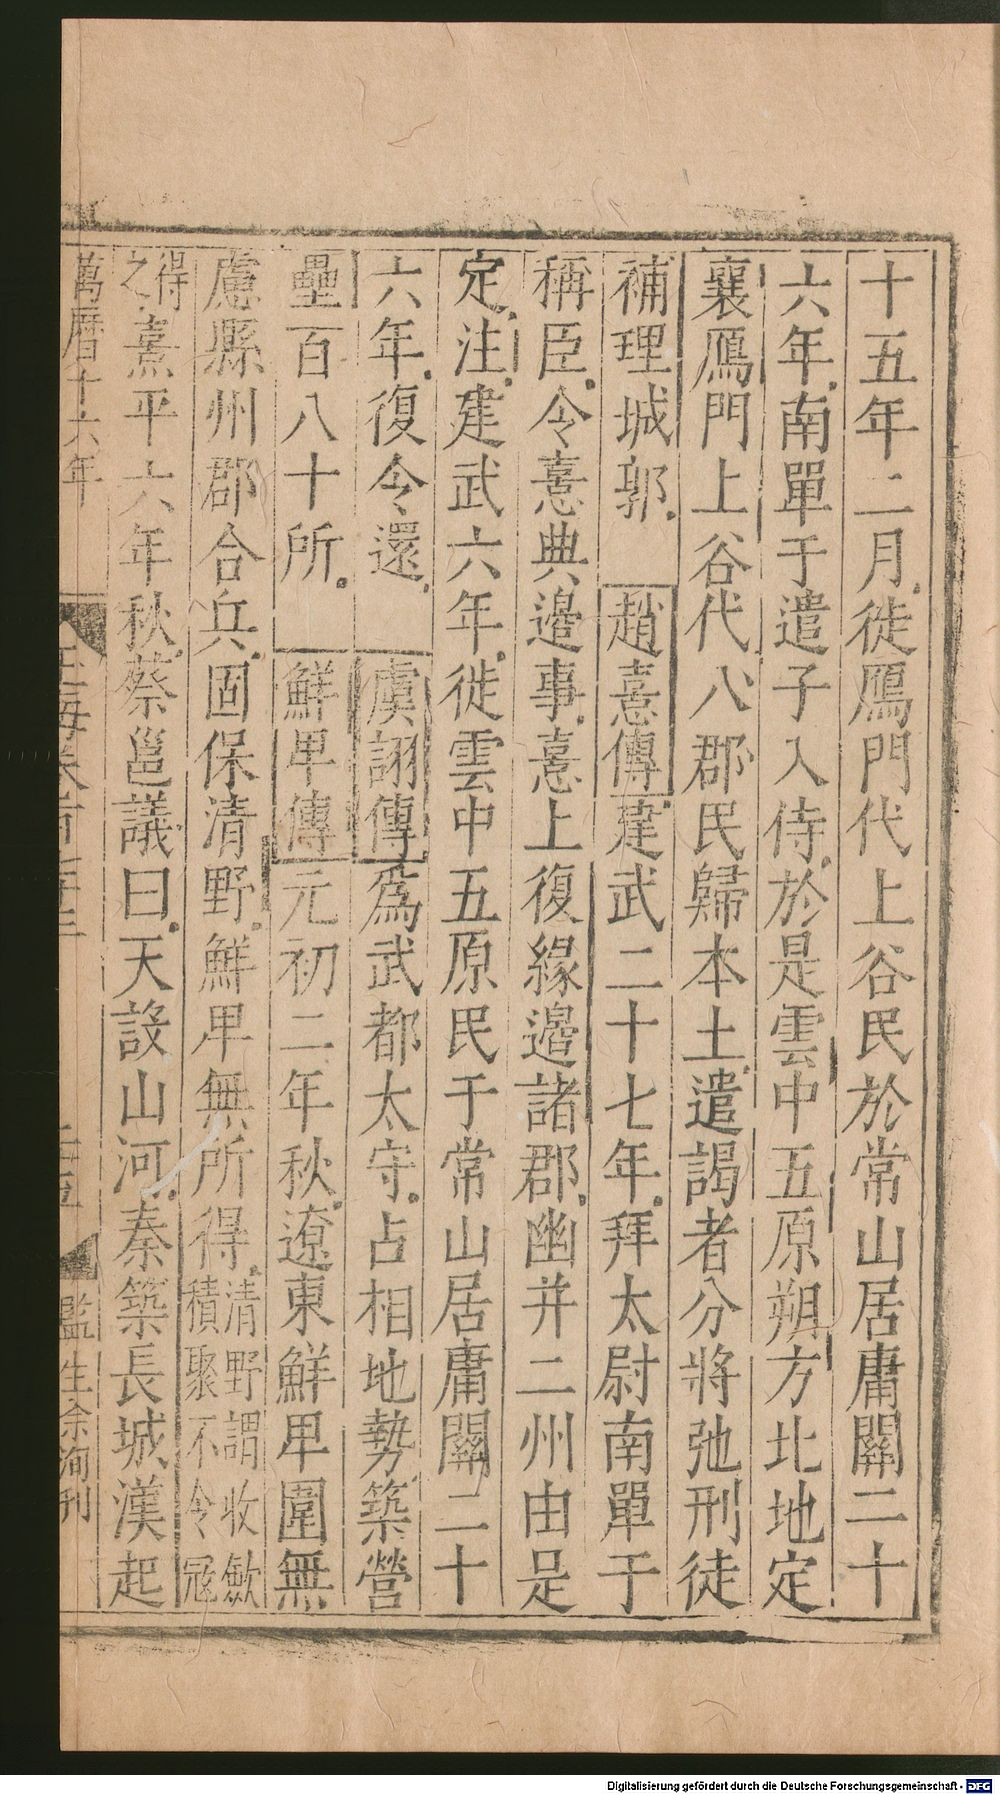 十五年二月徙鴈門代上谷民於常山居庸關二十
六年南單于遣子入侍於是雲中五原朔方北地定
襄鴈門上谷代八郡民歸本土遣謁者分將弛刑徒
補理城郭　趙憙傳建武二十七年拜太尉南單于
稱臣令憙典邉事憙上復緣邉諸郡幽并二州由是
定注建武六年徙雲中五原民于常山居庸關二十
六年復令還　虞詡傳爲武都太守占相地勢築營
壘百八十所　鮮卑傳元初二年秋遼東鮮卑圍無
慮縣州郡合兵固保清野鮮卑無所得清野謂收斂
積聚不令冦
得之熹平六年秋蔡邕議曰天設山河秦築長城漢起
萬曆十六年
玉海卷百
監生余洵刊
Digitalisierung gefördert durch die Deutsche Forschungsgemeinschaft - DFG